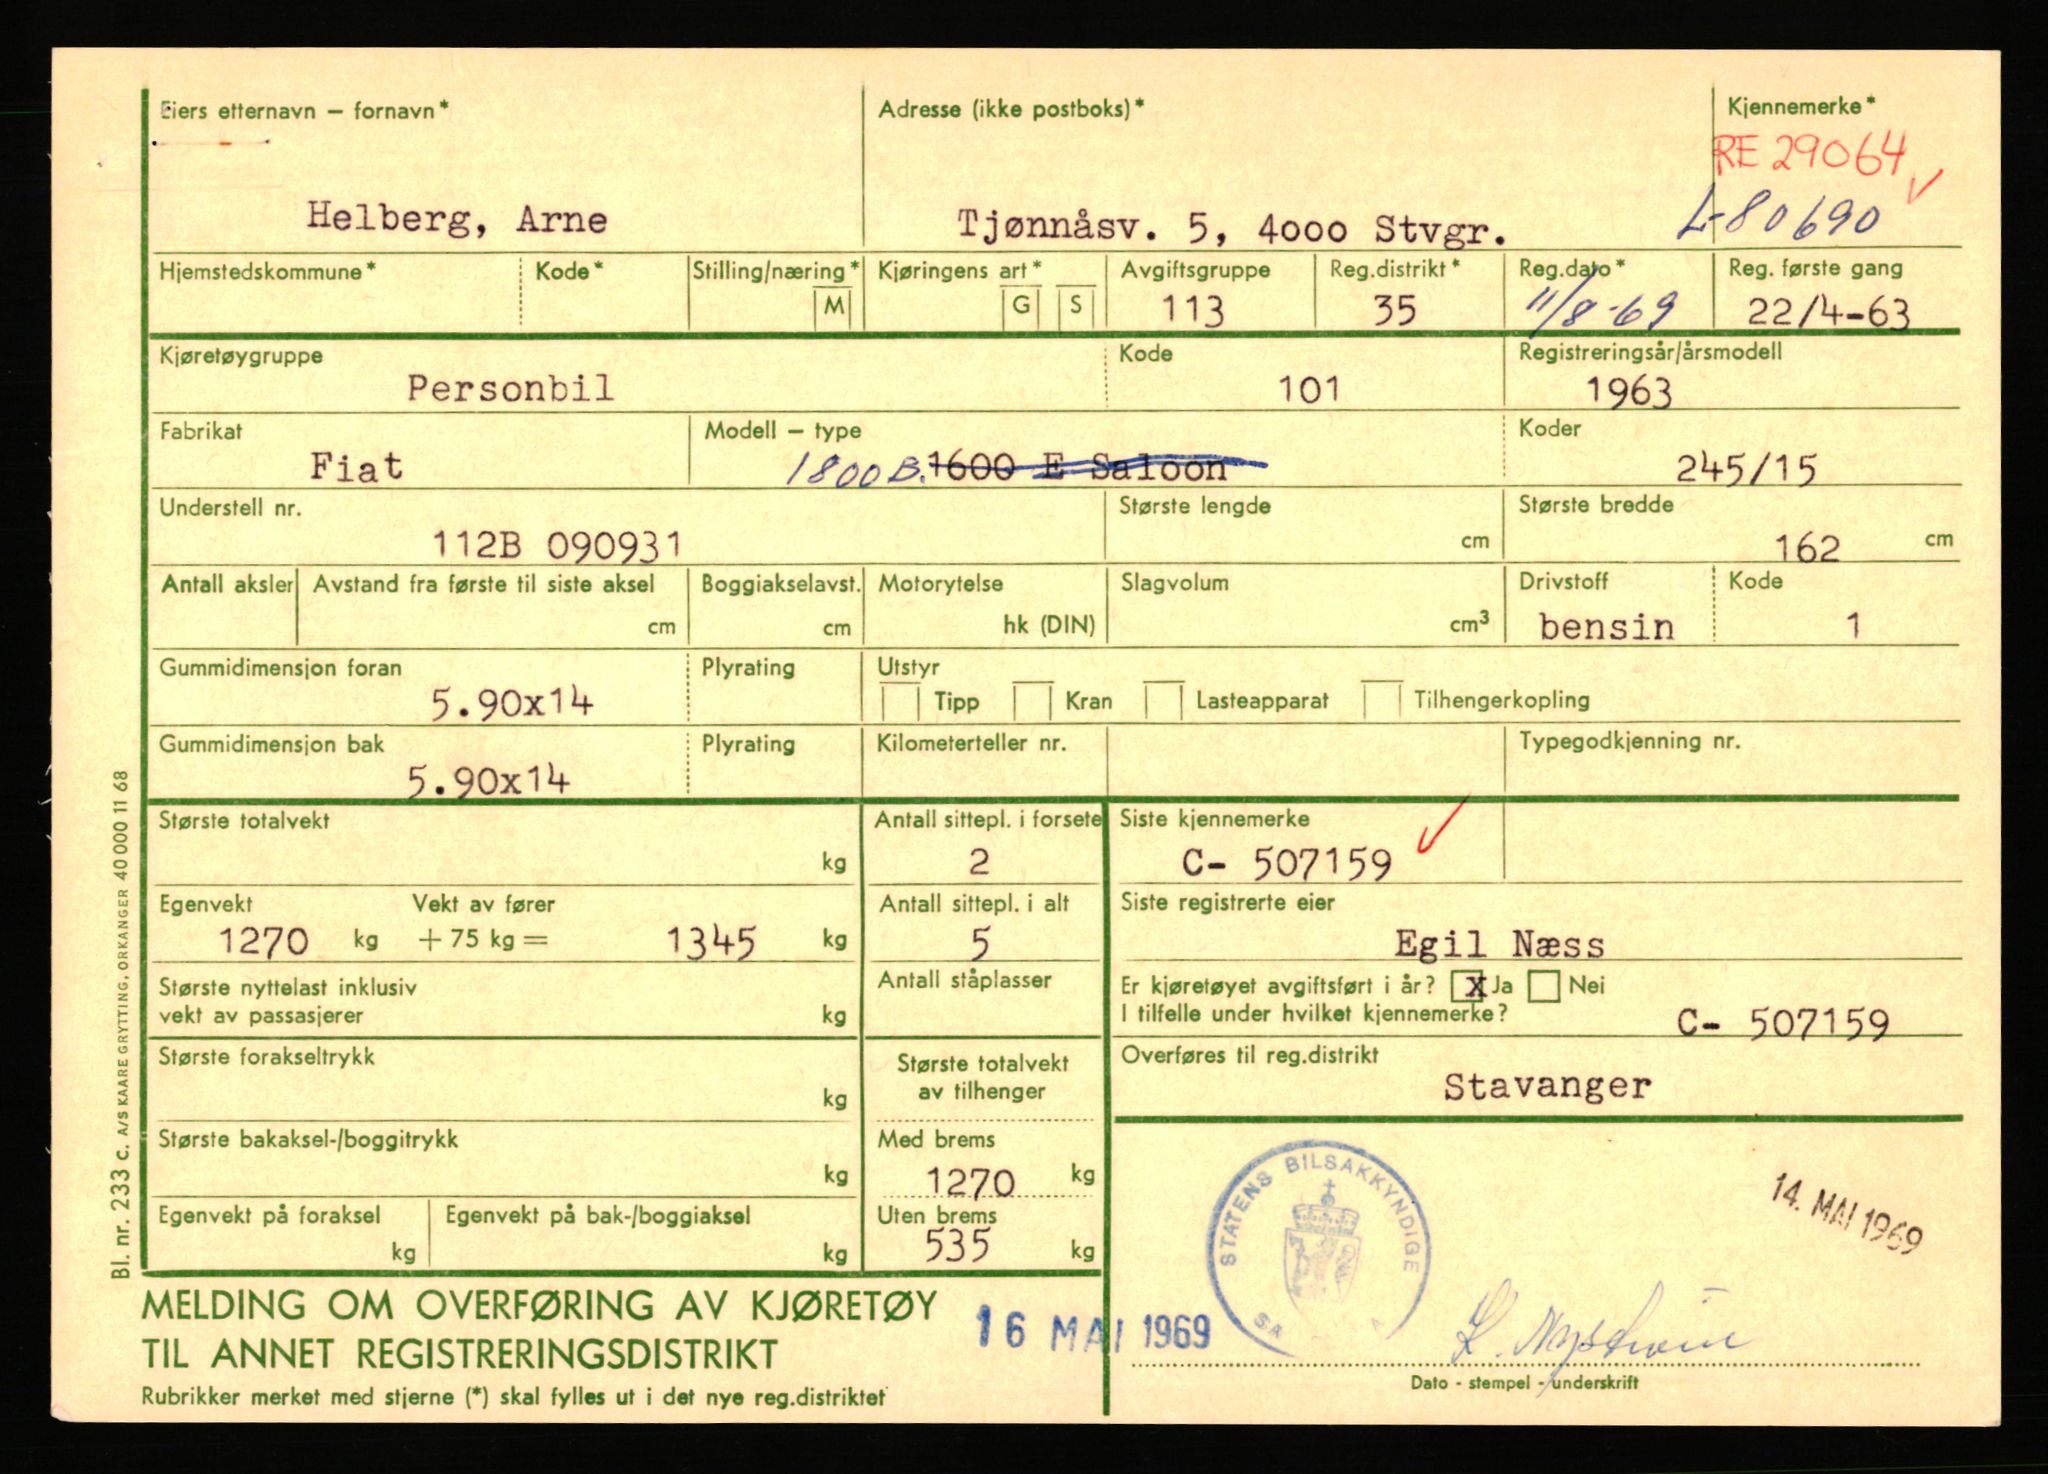 Eiers etternavn – fornavn*
Adresse (ikke postboks)*
Kjennemerke*
RE 29064
Helberg, Arne
Tjønnåsv. 5, 4000 Stvgr.
L-80690
Hjemstedskommune*
Kode*
Stilling/næring*
M
Kjøringens art*
G
S
Avgiftsgruppe
113
Reg.distrikt*
35
Reg.dato*
11/8-69
Reg. første gang
22/4-63
Kjøretøygruppe
Personbil
Kode
101
Registreringsår/årsmodell
1963
Fabrikat
Fiat
Modell – type
1800 B. 1600 E Saloon
Koder
245/15
Understell nr.
112B 090931
Største lengde
cm
Største bredde
162 cm
Antall aksler
Avstand fra første til siste aksel
cm
Boggiakselavst.
cm
Motorytelse
hk (DIN)
Slagvolum
cm³
Drivstoff
bensin
Kode
1
Gummidimensjon foran
5.90x14
Plyrating
Utstyr
Tipp
Kran
Lasteapparat
Tilhengerkopling
Gummidimensjon bak
5.90x14
Plyrating
Kilometerteller nr.
Typegodkjenning nr.
Største totalvekt
kg
Antall sittepl. i forsete
2
Siste kjennemerke
C- 507159
Egenvekt
1270 kg
Vekt av fører
+ 75 kg = 1345 kg
Antall sittepl. i alt
5
Siste registrerte eier
Egil Næss
Største nyttelast inklusiv
vekt av passasjerer
kg
Antall ståplasser
Er kjøretøyet avgiftsført i år? X Ja Nei
I tilfelle under hvilket kjennemerke?
C- 507159
Største forakseltrykk
kg
Største totalvekt
av tilhenger
Overføres til reg.distrikt
Stavanger
Største bakaksel-/boggitrykk
kg
Med brems
1270 kg
Egenvekt på foraksel
kg
Egenvekt på bak-/boggiaksel
kg
Uten brems
535 kg
STATENS BILSAKKYNDIGE
14. MAI 1969
MELDING OM OVERFØRING AV KJØRETØY
TIL ANNET REGISTRERINGSDISTRIKT
16 MAI 1969
Rubrikker merket med stjerne (*) skal fylles ut i det nye reg.distriktet
Dato - stempel - underskrift
Bl. nr. 233 c. A/S KAARE GRYTTING, ORKANGER 40 000 11 68